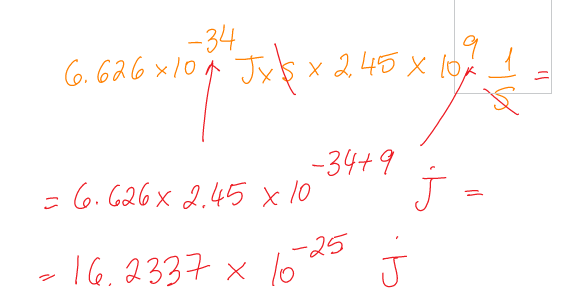 6.626 × 10⁻³⁴ J × s × 2.45 × 10⁹ × 1/s =
= 6.626 × 2.45 × 10⁻³⁴⁺⁹ J =
= 16.2337 × 10⁻²⁵ J